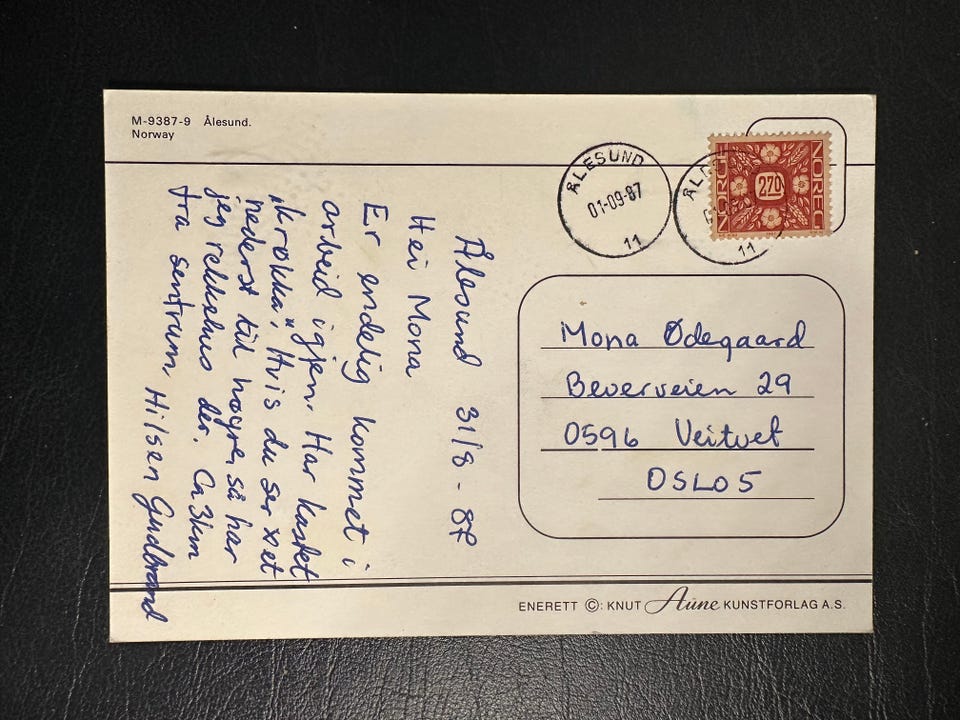 M-9387-9 Ålesund.
Norway
ÅLESUND
01-09-87
11
ÅLE
11
NOREG
270
NOREG
Ålesund 31/8 - 87
Hei Mona
Er endelig kommet i
arbeid igjen. Har kastet
"krokka". Hvis du ser xet
nederst til høgre, så har
jeg rekkehus der. Ca 3km
fra sentrum. Hilsen Gudbrand
Mona Ødegaard
Beverveien 29
0596 Veitvet
OSLO 5
ENERETT ©: KNUT Aune KUNSTFORLAG A.S.